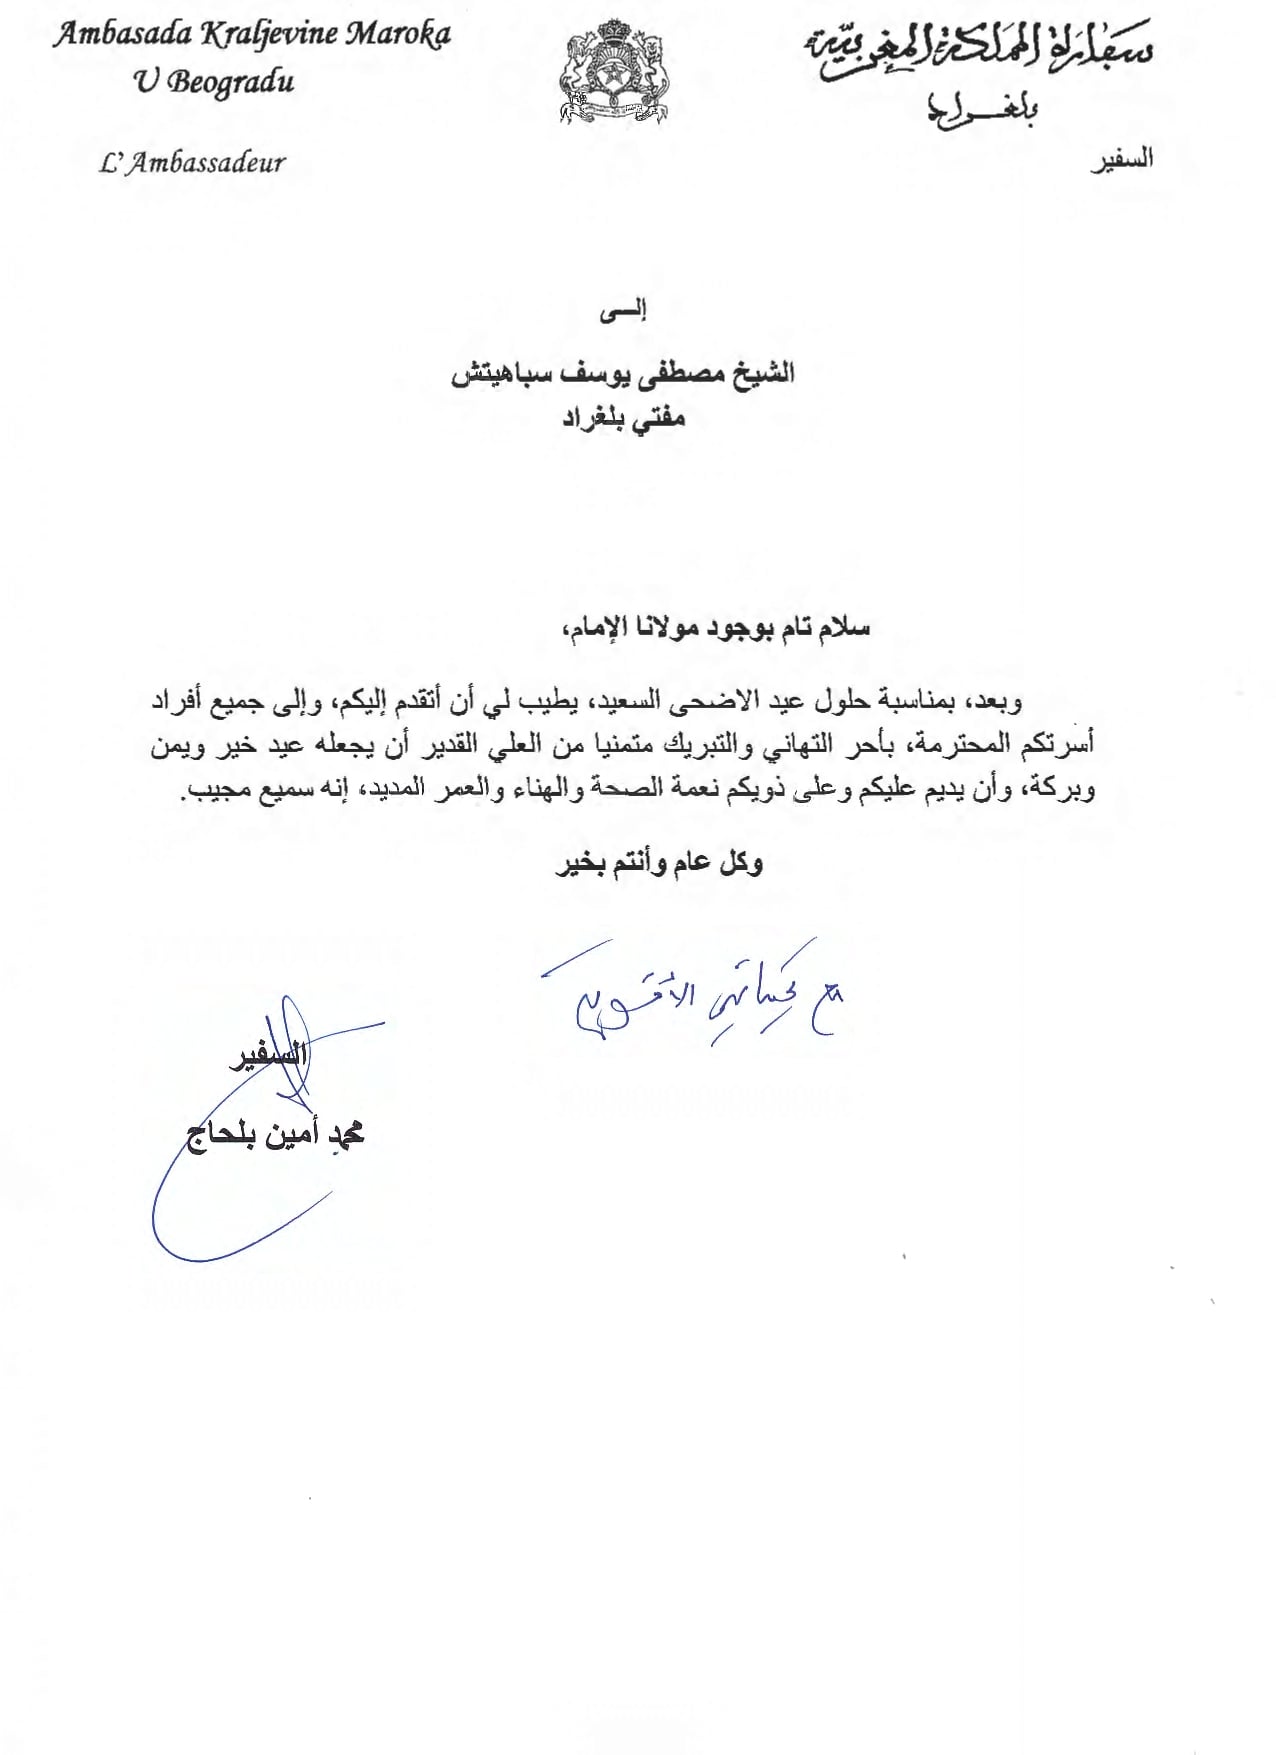 Ambasada Kraljevine Maroka
U Beogradu
L'Ambassadeur
سفارة المملكة المغربية
بلغراد
السفير
إلـــى
الشيخ مصطفى يوسف سباهيتش
مفتي بلغراد
سلام تام بوجود مولانا الإمام،
وبعد، بمناسبة حلول عيد الاضحى السعيد، يطيب لي أن أتقدم إليكم، وإلى جميع أفراد
أسرتكم المحترمة، بأحر التهاني والتبريك متمنيا من العلي القدير أن يجعله عيد خير ويمن
وبركة، وأن يديم عليكم وعلى ذويكم نعمة الصحة والهناء والعمر المديد، إنه سميع مجيب.
وكل عام وأنتم بخير
مع تحياتي الأخوية
السفير
محمد أمين بلحاج